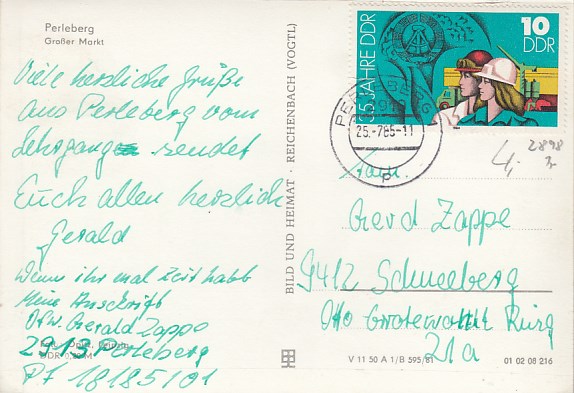 Perleberg
Großer Markt
Viele herzliche Grüße
aus Perleberg vom
Lehrgang sendet
Euch allen herzlich
Gerald
Wenn ihr mal Zeit habt
Meine Anschrift
Ofw. Gerald Zappe
2913 Perleberg
PF 18185/01
DDR
BILD UND HEIMAT · REICHENBACH (VOGTL)
35 JAHRE DDR
10
DDR
1984
PERLEBERG
25.-7.85-11
4,-
2898
Gerd Zappe
9412 Schneeberg
Otto Grotewohl Ring
21a
V 11 50 A 1/B 595/81
01 02 08 216